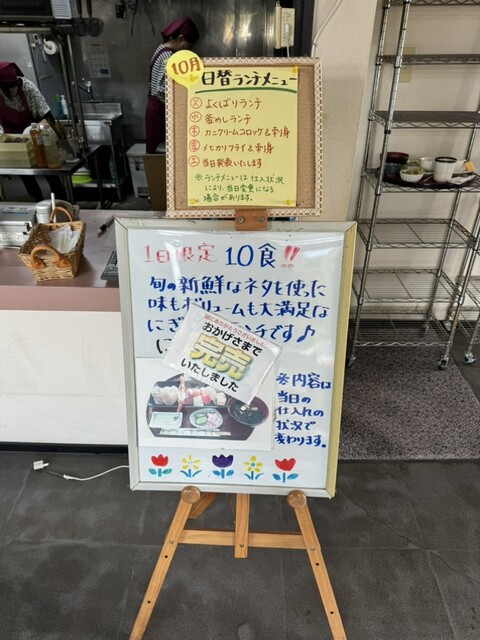 10月
日替ランチメニュー
火 よくばりランチ
水 釜めしランチ
木 カニクリームコロッケ&刺身
金 メヒカリフライ&刺身
土 当日発表いたします
※ランチメニューは仕入状況
により、当日変更になる
場合があります。
1日限定 10食!!
旬の新鮮なネタを使った
味もボリュームも大満足な
にぎ
ンチです♪
誠にありがとうございました。
おかげさまで
完売
いたしました
※内容は
当日の
仕入れの
状況で
変わります。